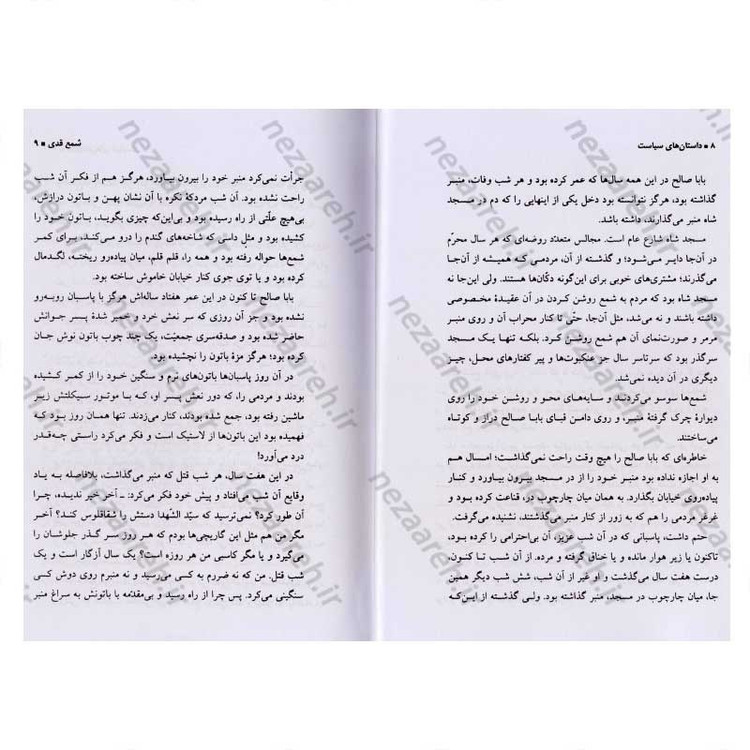 ۸ ■ داستان‌های سیاست
بابا صالح در این همه سال‌ها که عمر کرده بود و هر شب وفات، منبر
گذاشته بود، هرگز نتوانسته بود دخل یکی از اینهایی را که دم در مسجد
شاه منبر می‌گذارند، داشته باشد.
مسجد شاه شارع عام است. مجالس متعدّد روضه‌ای که هر سال محرّم
در آن‌جا دایر می‌شود؛ و گذشته از آن، مردمی که همیشه از آن‌جا
می‌گذرند؛ مشتری‌های خوبی برای این‌گونه دکّان‌ها هستند. ولی این‌جا نه
مسجد شاه بود که مردم به شمع روشن کردن در آن عقیدهٔ مخصوصی
داشته باشند و نه می‌شد، مثل آن‌جا، حتّی تا کنار محراب آن و روی منبر
مرمر و صورت‌نمای آن هم شمع روشن کرد. بلکه تنها یک مسجد
سرگذر بود که سرتاسر سال جز عنکبوت‌ها و پیر کفتارهای محل، چیز
دیگری در آن دیده نمی‌شد.
شمع‌ها سوسو می‌کردند و سایه‌های محو و روشن خود را روی
دیوارهٔ چرک گرفتهٔ منبر، و روی دامن قبای بابا صالح دراز و کوتاه
می‌ساختند.
خاطره‌ای که بابا صالح را هیچ وقت راحت نمی‌گذاشت؛ امسال هم
به او اجازه نداده بود منبر خود را از در مسجد بیرون بیاورد و کنار
پیاده‌روی خیابان بگذارد. به همان میان چارچوب در، قناعت کرده بود و
غرغر مردمی را هم که به زور از کنار منبر می‌گذشتند، نشنیده می‌گرفت.
حتم داشت، پاسبانی که در آن شب عزیز، آن بی‌احترامی را کرده بود،
تاکنون یا زیر هوار مانده و یا خناق گرفته و مرده. از آن شب تا کنون،
درست هفت سال می‌گذشت و او غیر از آن شب، شش شب دیگر همین
جا، میان چارچوب در مسجد، منبر گذاشته بود. ولی گذشته از این‌که
شمع قدی ■ ۹
جرأت نمی‌کرد منبر خود را بیرون بیاورد، هرگز هم از فکر آن شب
راحت نشده بود. آن شب مردکهٔ نکره با آن نشان پهن و باتون درازش،
بی‌هیچ علّتی از راه رسیده بود و بی‌این‌که چیزی بگوید، باتون خود را
کشیده بود و مثل داسی که شاخه‌های گندم را درو می‌کند، برای کمر
شمع‌ها حواله رفته بود و همه را، قلم قلم، میان پیاده‌رو ریخته، لگدمال
کرده بود و یا توی جوی کنار خیابان خاموش ساخته بود.
بابا صالح تا کنون در این عمر هفتاد ساله‌اش هرگز با پاسبان روبه‌رو
نشده بود و جز آن روزی که سر نعش خرد و خمیر شدهٔ پسر جوانش
حاضر شده بود و صدقه‌سری جمعیّت، یک چند چوب باتون نوش جان
کرده بود؛ هرگز مزهٔ باتون را نچشیده بود.
در آن روز پاسبان‌ها باتون‌های نرم و سنگین خود را از کمر کشیده
بودند و مردمی را، که دور نعش پسر او، که با موتور سیکلتش زیر
ماشین رفته بود، جمع شده بودند، کنار می‌زدند. تنها همان روز بود که
فهمیده بود این باتون‌ها از لاستیک است و فکر می‌کرد راستی چه‌قدر
درد می‌آورد!
در این هفت سال، هر شب قتل که منبر می‌گذاشت، بلافاصله به یاد
وقایع آن شب می‌افتاد و پیش خود فکر می‌کرد: ـ آخر خیر ندیده، چرا
آن طور کرد؟ نمی‌ترسید که سیّد الشّهدا دستش را شقاقلوس کند؟ آخر
مگر من هم مثل این گاریچی‌ها بودم که هر روز سر گذر جلوشان را
می‌گیرد و یا مگر کاسبی من هر روزه است؟ یک سال آزگار است و یک
شب قتل. من که نه ضررم به کسی می‌رسید و نه منبرم روی دوش کسی
سنگینی می‌کرد. پس چرا از راه رسید و بی‌مقدّمه با باتونش به سراغ منبر
nezaareh.ir